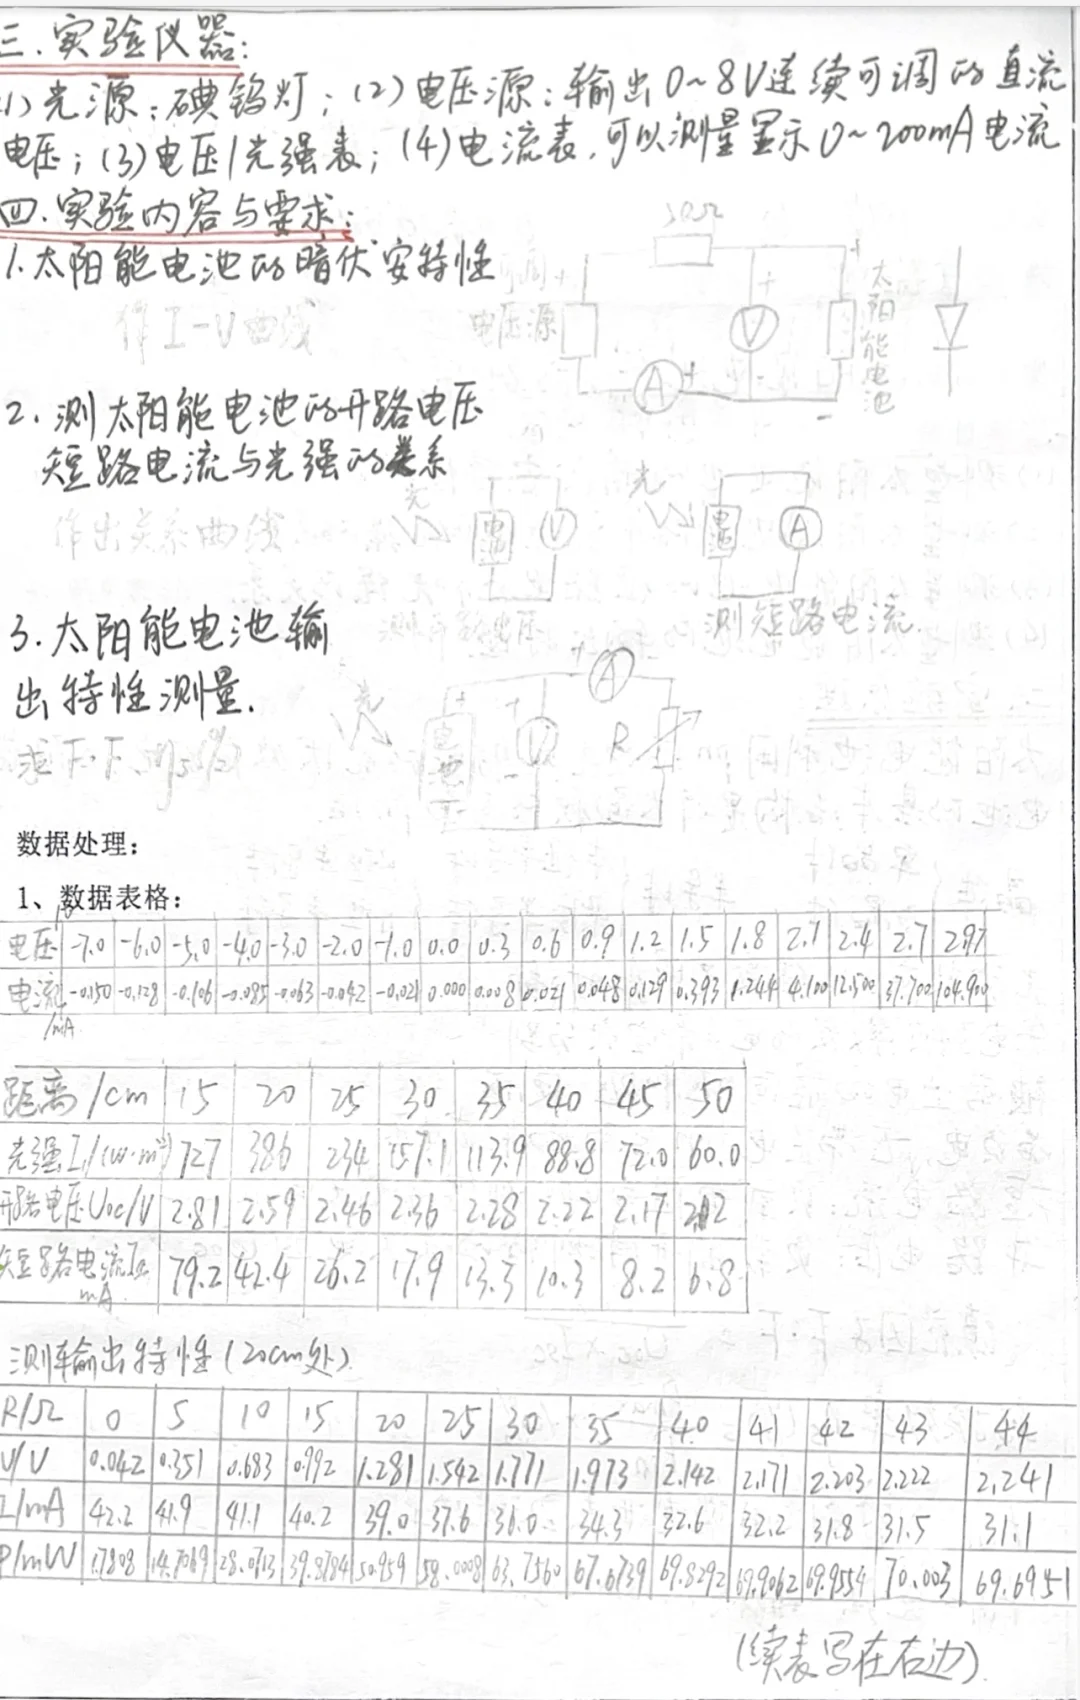 三.实验仪器:
(1)光源:碘钨灯;(2)电压源:输出0~8V连续可调的直流
电压;(3)电压/光强表;(4)电流表,可以测量显示0~200mA电流
四.实验内容与要求:
1.太阳能电池的暗伏安特性
作I-V曲线
50Ω
可调
电压源
+
+
+
V
太阳能电池
A
+
-
-
2.测太阳能电池的开路电压
短路电流与光强的关系
作出关系曲线
光
电池
V
光
电池
A
测短路电流.
3.太阳能电池输
出特性测量.
求F·F、
光
电池
+
+
V
-
+
A
R
数据处理:
1、数据表格:
电压/V -7.0 -6.0 -5.0 -4.0 -3.0 -2.0 -1.0 0.0 0.3 0.6 0.9 1.2 1.5 1.8 2.1 2.4 2.7 2.97
电流/mA -0.150 -0.128 -0.106 -0.085 -0.063 -0.042 -0.021 0.000 0.008 0.021 0.048 0.129 0.393 1.244 4.100 12.500 37.700 104.900
距离/cm 15 20 25 30 35 40 45 50
光强I/(w·m²) 727 386 234 157.1 113.9 88.8 72.0 60.0
开路电压Uoc/V 2.81 2.59 2.46 2.36 2.28 2.22 2.17 2.12
短路电流Isc mA 79.2 42.4 26.2 17.9 13.3 10.3 8.2 6.8
测输出特性(20cm处)
R/Ω 0 5 10 15 20 25 30 35 40 41 42 43 44
U/V 0.042 0.351 0.683 0.992 1.281 1.542 1.771 1.973 2.142 2.171 2.203 2.222 2.241
I/mA 42.2 41.9 41.1 40.2 39.0 37.6 36.0 34.3 32.6 32.2 31.8 31.5 31.1
P/mW 1.7808 14.7069 28.0713 39.8784 50.959 58.0008 63.7560 67.6739 69.8292 69.9062 69.9554 70.003 69.6951
(续表写在右边).